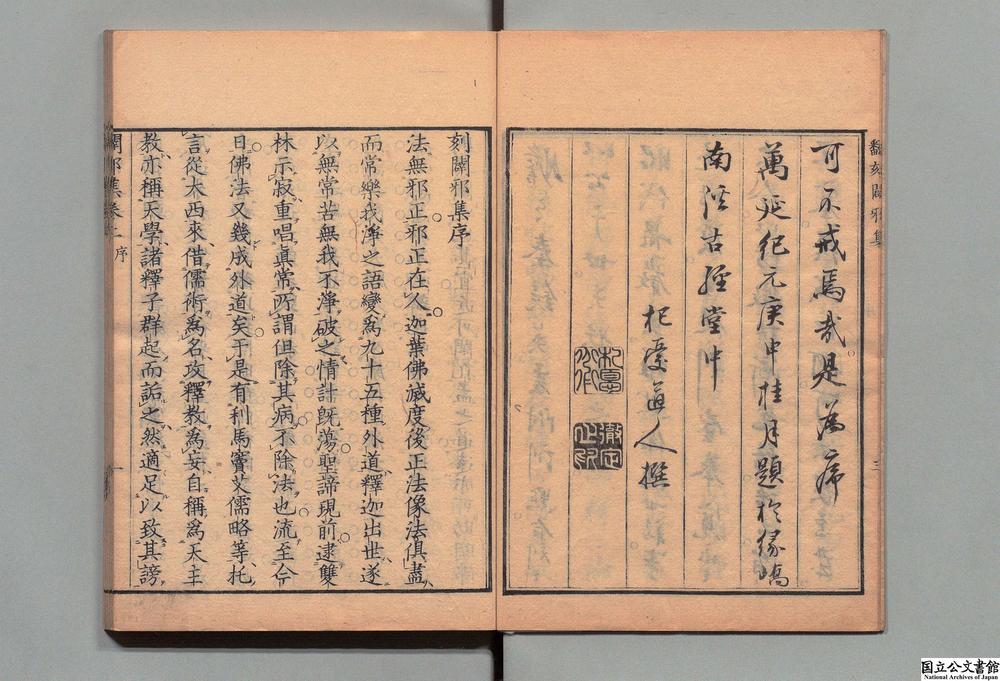 翻刻闢邪集
三
可不戒焉哉是為序
萬延紀元庚申桂月題於緣嶋
南溪古經堂中
杞憂道人撰
杞憂
徹定
刻闢邪集序
法無邪正邪正在人迦葉佛滅度後正法像法俱盡
而常樂我淨之語變爲九十五種外道釋迦出世遂
以無常苦無我不淨破之情計旣蕩聖諦現前逮雙
林示寂重唱眞常所謂但除其病不除法也流至今
日佛法又幾成外道矣于是有利馬竇艾儒略等托
言從大西來借儒術爲名攻釋教爲妄自稱爲天主
教亦稱天學諸釋子群起而詬之然適足以致其謗
闢邪集卷上 序
一
国立公文書館
National Archives of Japan